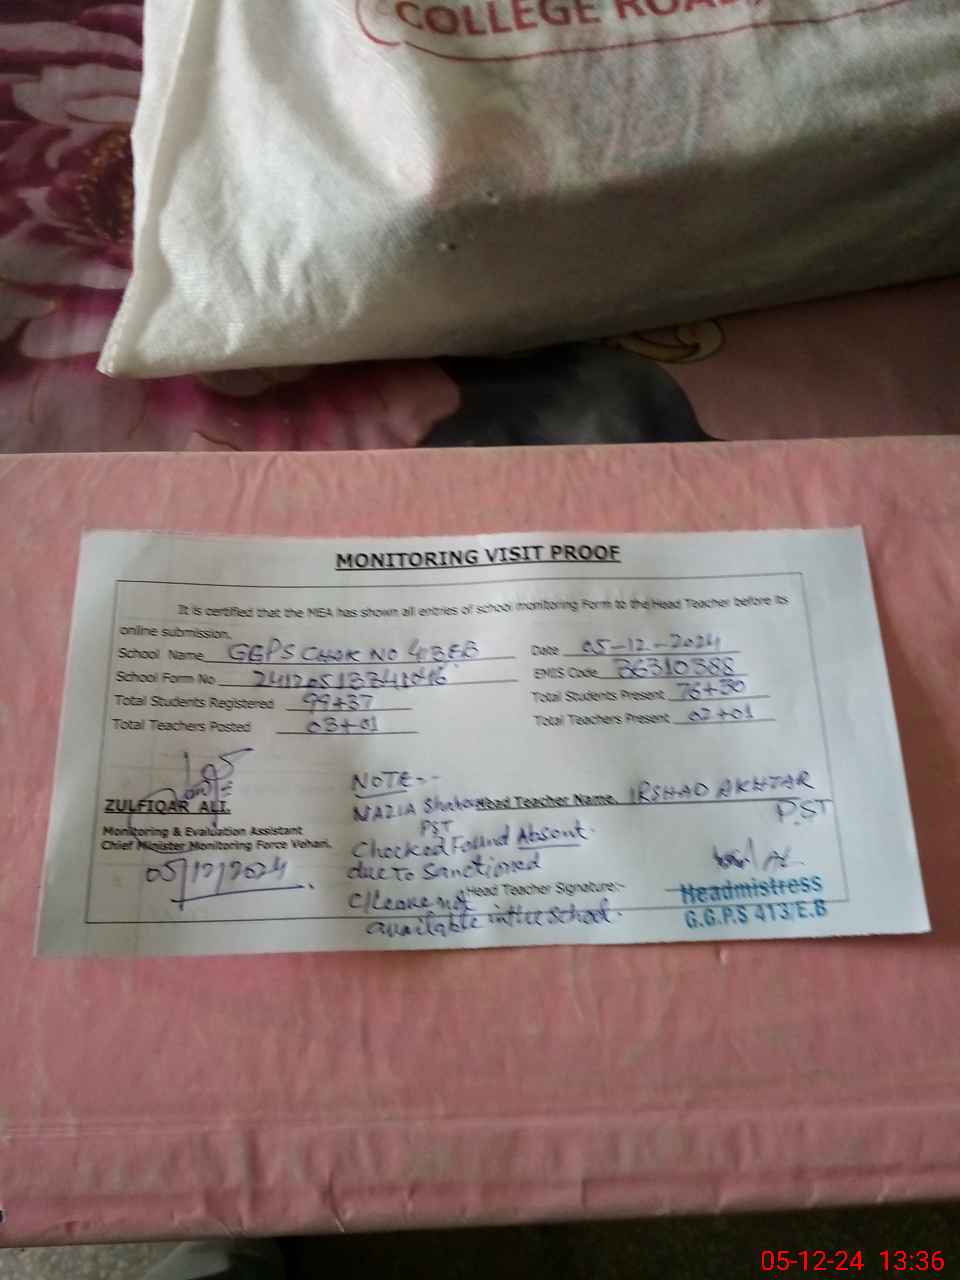 COLLEGE ROAD,
MONITORING VISIT PROOF
It is certified that the MEA has shown all entries of school monitoring Form to the Head Teacher before its
online submission.
School Name GGPS CHAK NO 413EB Date 05-12-2024
School Form No EMIS Code 36310388
Total Students Registered 99+37 Total Students Present 76+30
Total Teachers Posted 03+01 Total Teachers Present 02+01
NOTE:-
ZULFIQAR ALI. NAZIA Head Teacher Name. IRSHAD AKHTAR
PST PST
Monitoring & Evaluation Assistant
Chief Minister Monitoring Force Vehari.
Checked Found Absent.
due to Sanctioned
05/12/2024
C/Leave not Head Teacher Signature:-
available in the school.
Headmistress
G.G.P.S 413/E.B
05-12-24 13:36